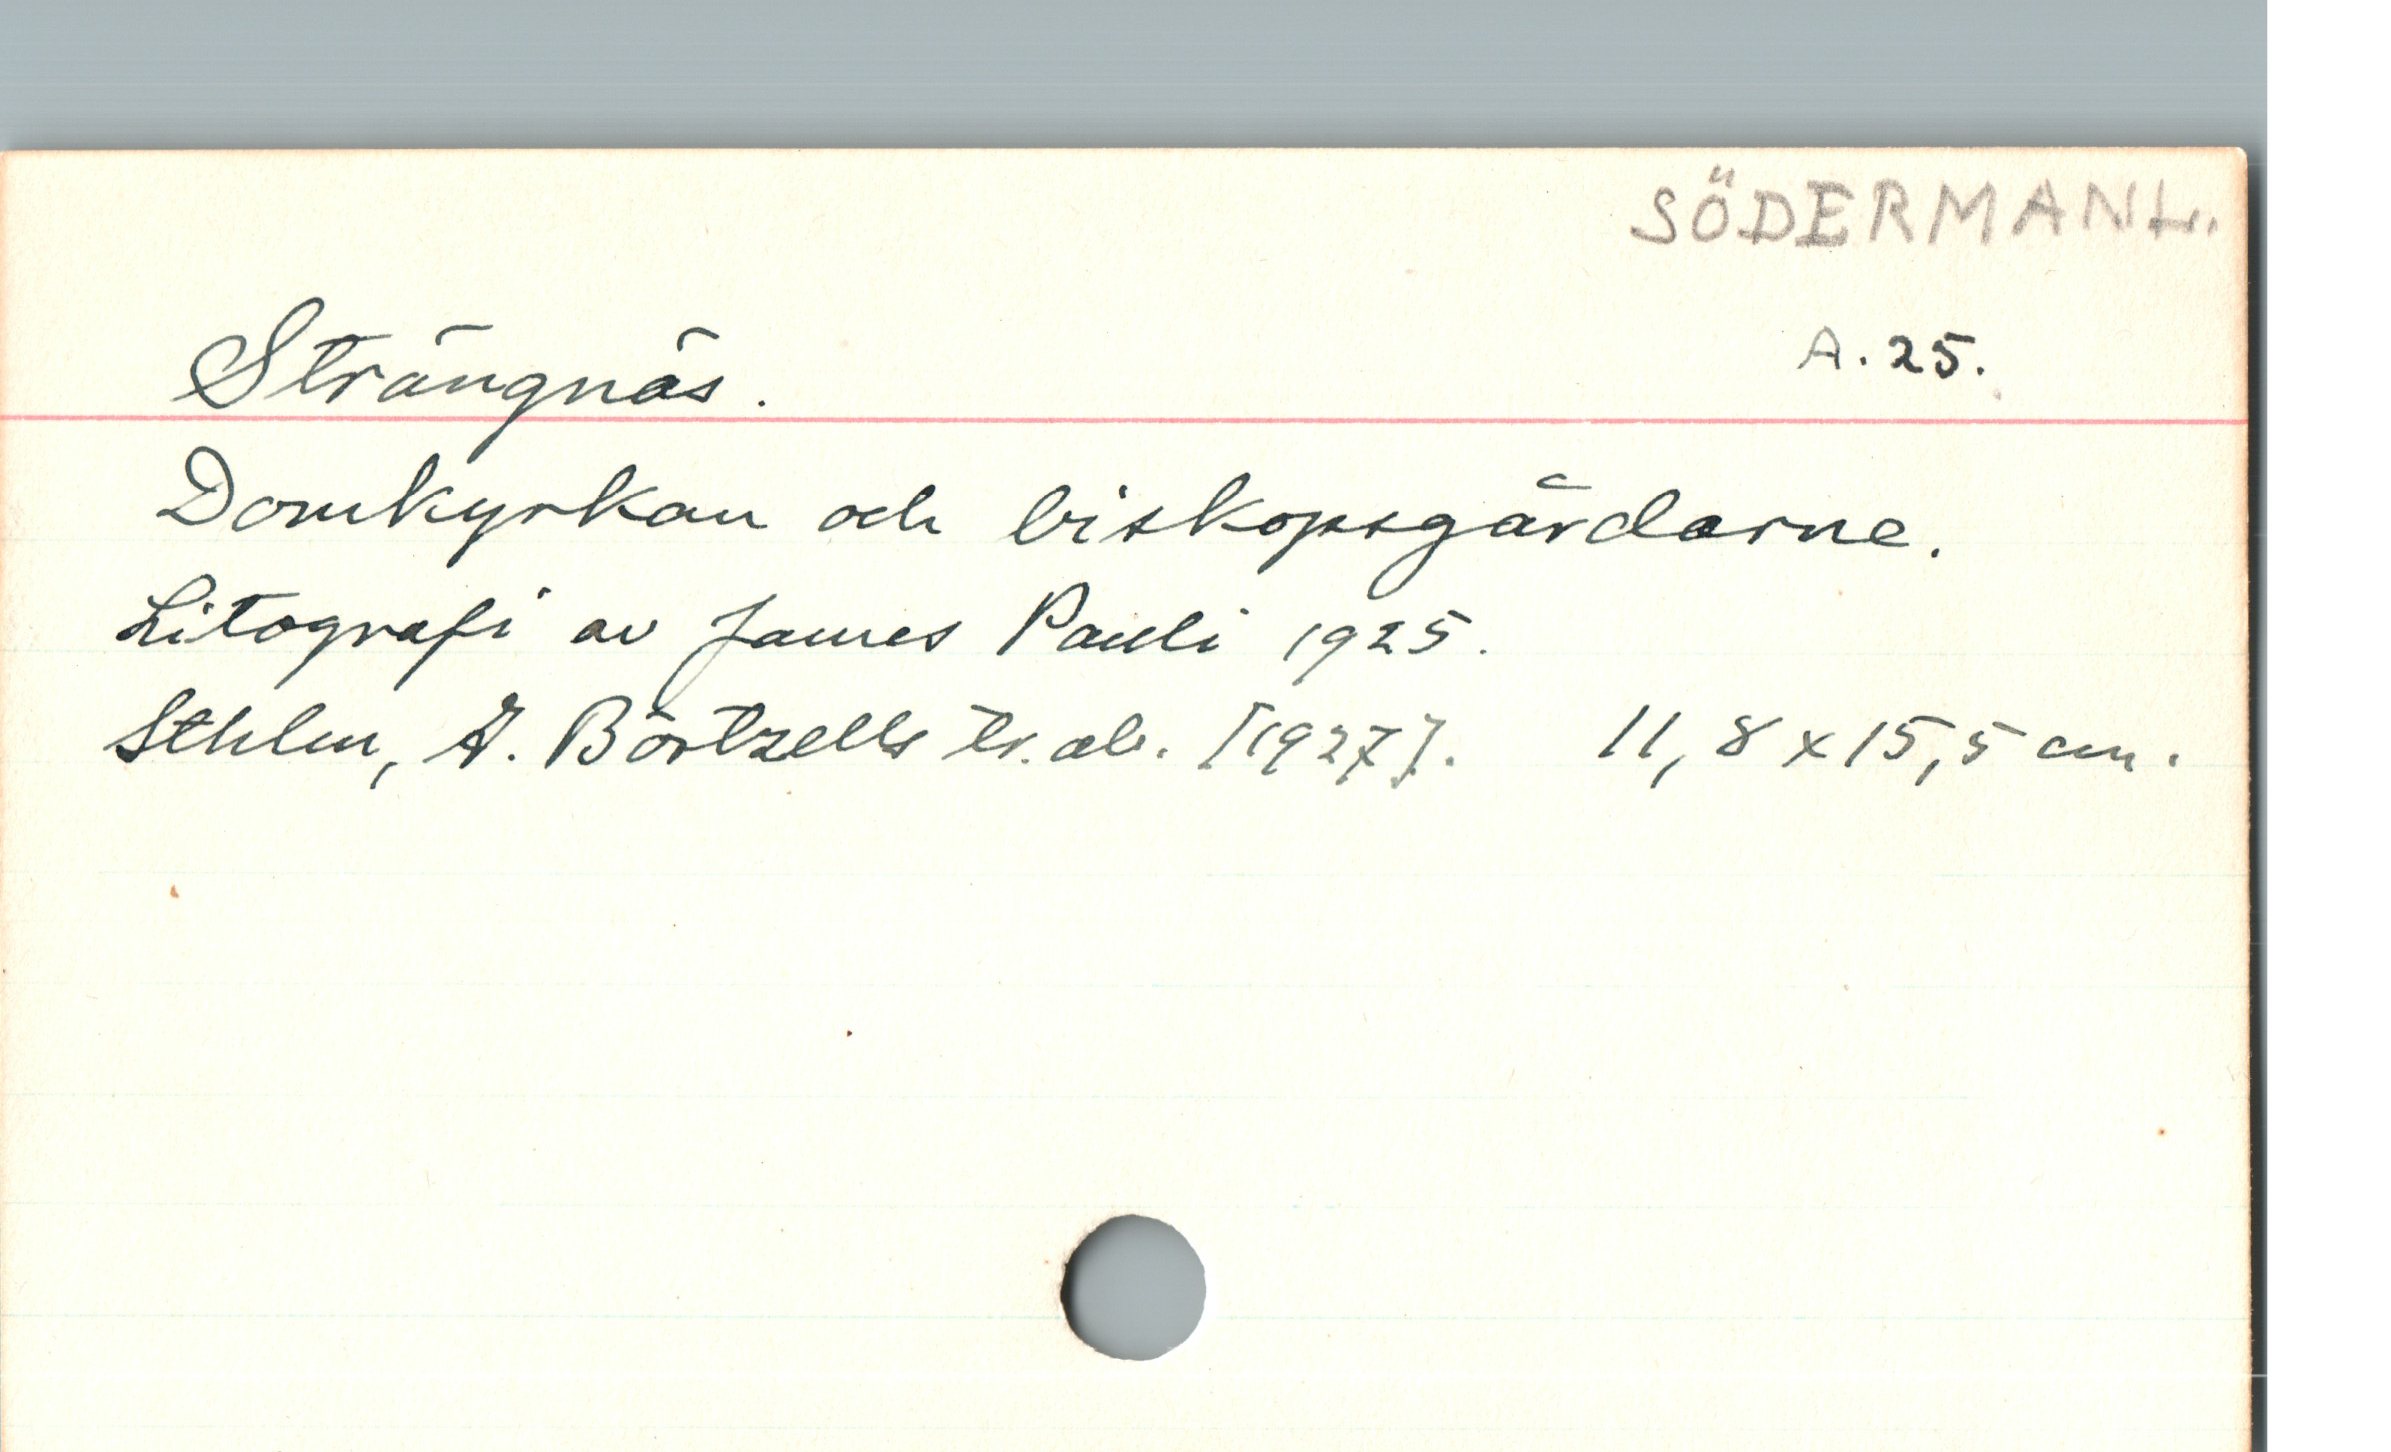 SÖDERMANL.
Strängnäs. A. 25.
Domkyrkan och biskopsgårdarne.
Litografi av James Pauli 1925.
Sthlm, A. Börtzells tr. ab. [1927]. 11,8 x 15,5 cm.